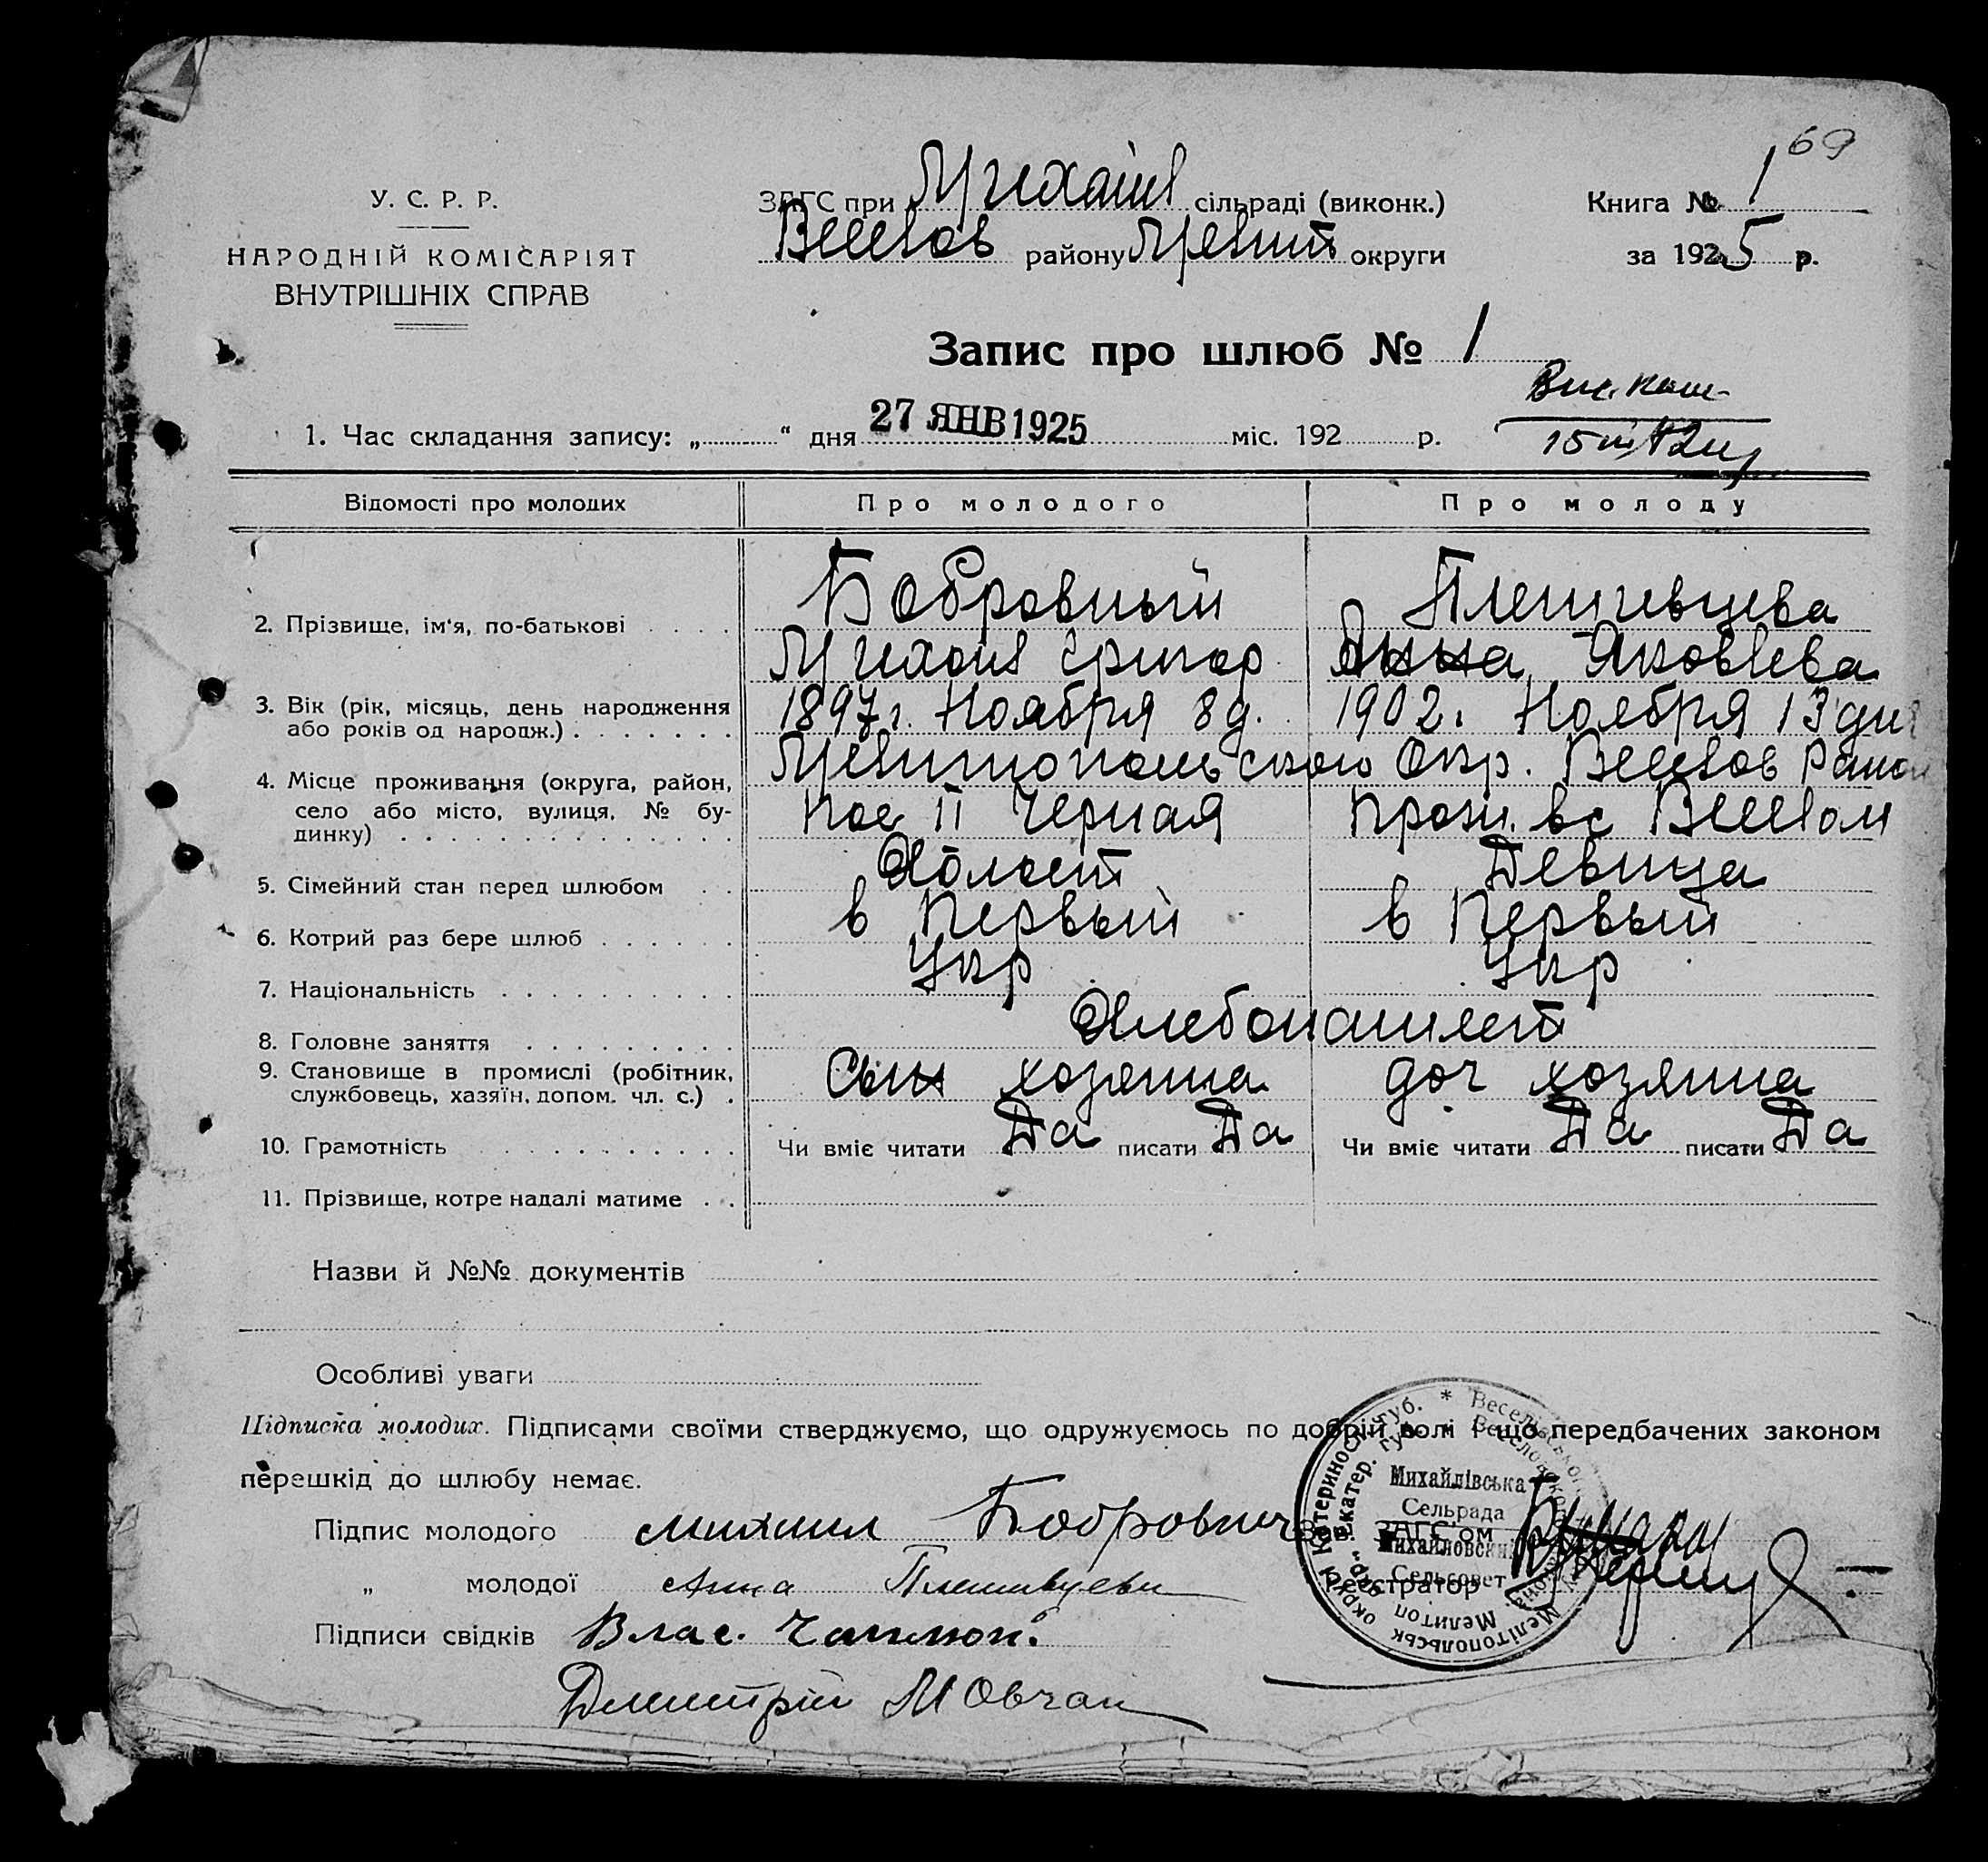 69
У. С. Р. Р.
НАРОДНІЙ КОМІСАРІЯТ
ВНУТРІШНІХ СПРАВ
ЗАГС при Михайл сільраді (виконк.)
Веселов району Мелит округи
Книга № 1
за 1925 р.
Запис про шлюб № 1
1. Час складання запису: „ “ дня 27 ЯНВ 1925 міс. 192 р.
Відомості про молодих Про молодого Про молоду
2. Прізвище, ім'я, по-батькові Бобровный Плешивцева
Михаил Григор Анна Яковлева
3. Вік (рік, місяць, день народження або років од народж.) 1897 г. Ноября 8 д. 1902 г. Ноября 13 дня
4. Місце проживання (округа, район, село або місто, вулиця, № будинку) Мелитопольского Окр. Веселов Район
пос II Черная прож. в с Веселом
5. Сімейний стан перед шлюбом Холост Девица
6. Котрий раз бере шлюб в Первый в Первый
7. Національність Укр Укр
8. Головне заняття Хлебопашест
9. Становище в промислі (робітник, службовець, хазяїн, допом. чл. с.) Сын хозяина доч хозяина
10. Грамотність Чи вміє читати Да писати Да Чи вміє читати Да писати Да
11. Прізвище, котре надалі матиме
Назви й №№ документів
Особливі уваги
Підписка молодих. Підписами своїми стверджуємо, що одружуємось по добрій волі і що передбачених законом
перешкід до шлюбу немає.
Підпис молодого Михаил Бобровнич
Зав. ЗАГС'ом
„ молодої Анна Плешивцева
Реєстратор
Підписи свідків Влас.
Дмитрій Мовчан
Михайлівська
Сельрада
Михайловский
Сельсовет